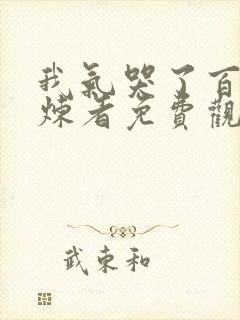 我氣哭了百
煉者免費觀
武東和